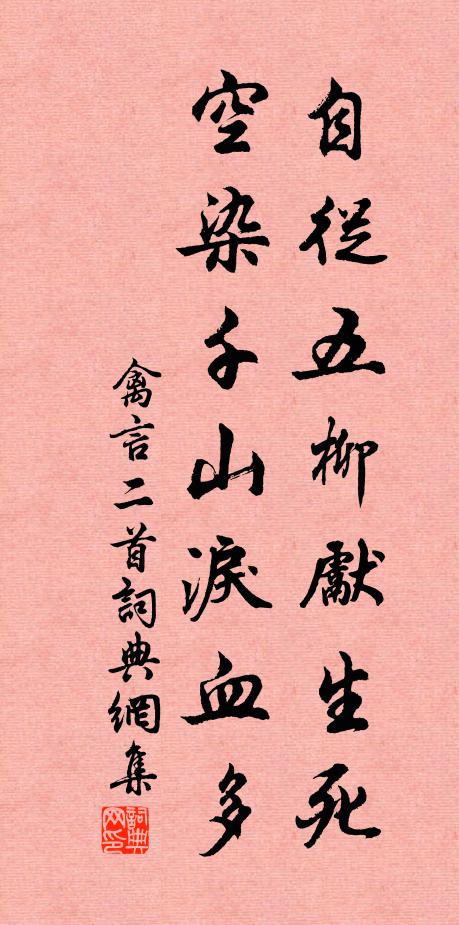 自從五柳獻生死
空染千山淚血多
禽言二首詞典網集
詞典
网印